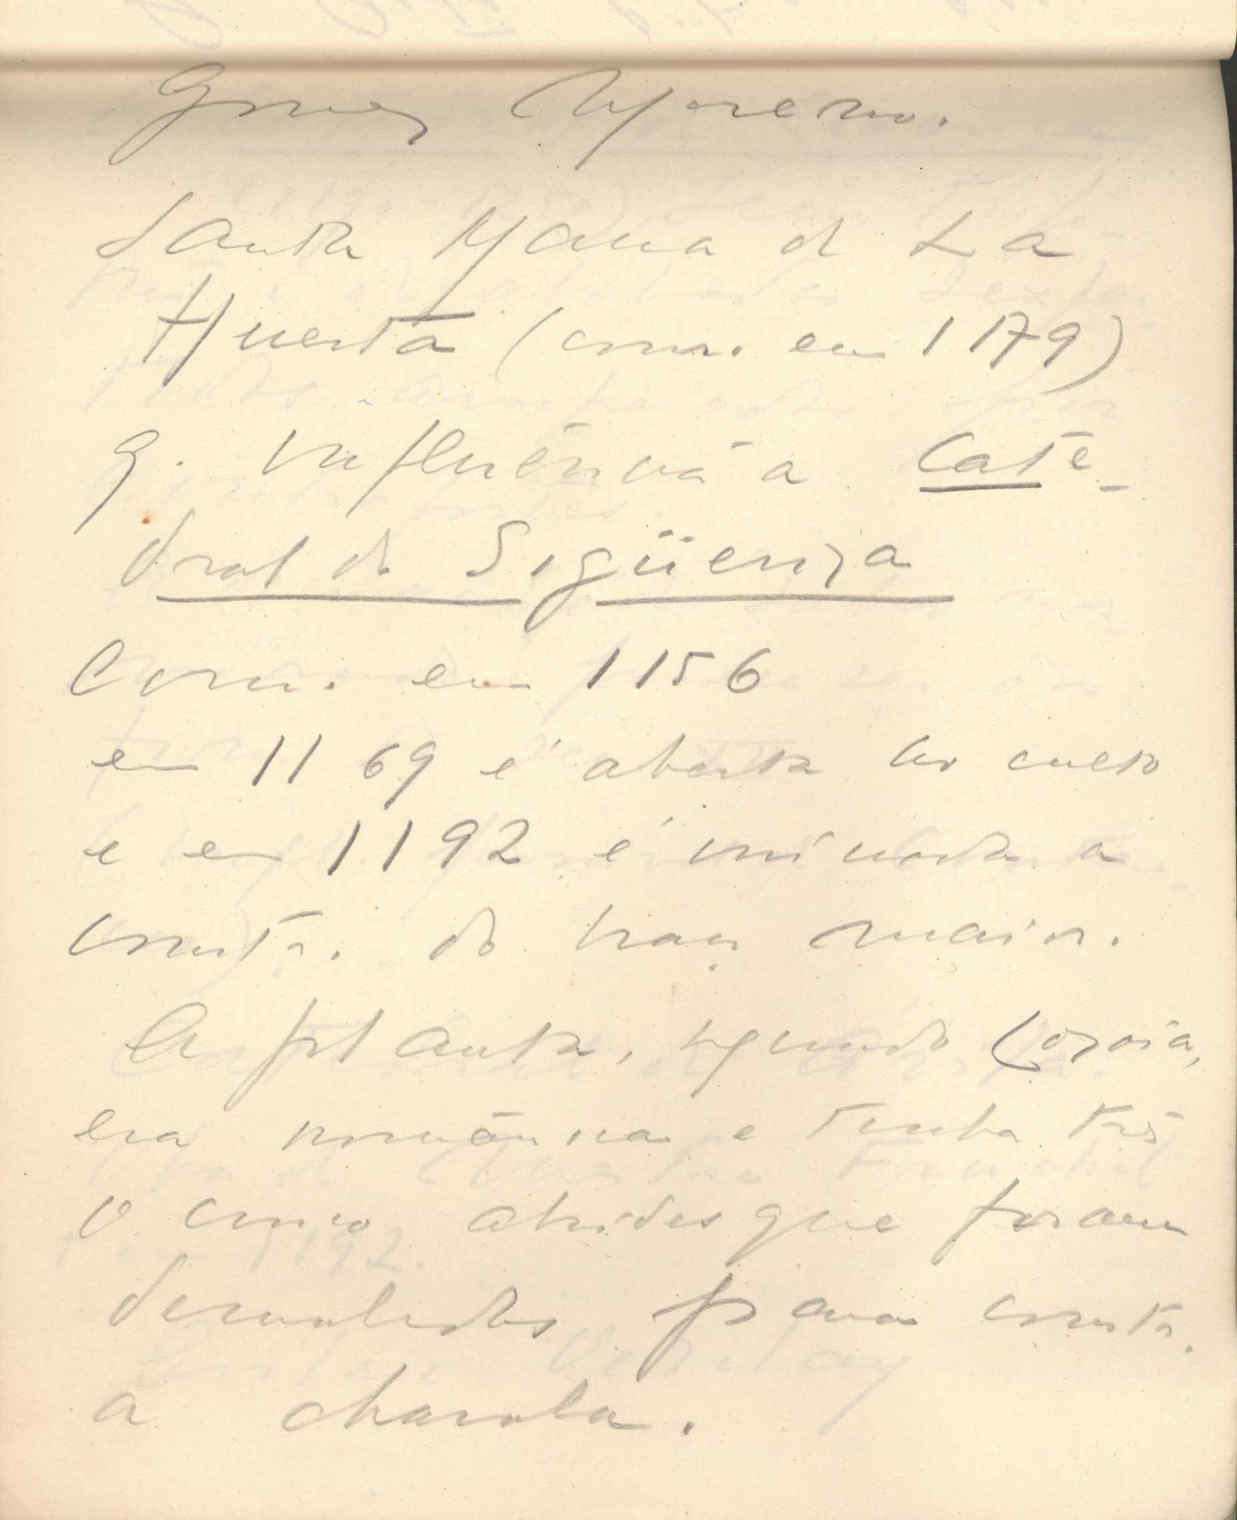 Gomez Moreno.
Santa Maria de La
Huerta (com. em 1179)
q. influência a Cate-
dral de Sigüenza
Com. em 1156
em 1169 é aberta ao culto
e em 1192 é iniciada a
constr. do trans. maior.
A planta, segundo Lozoia,
era românica e tinha três
o cinco absides que foram
demolidas para constr.
a charola.